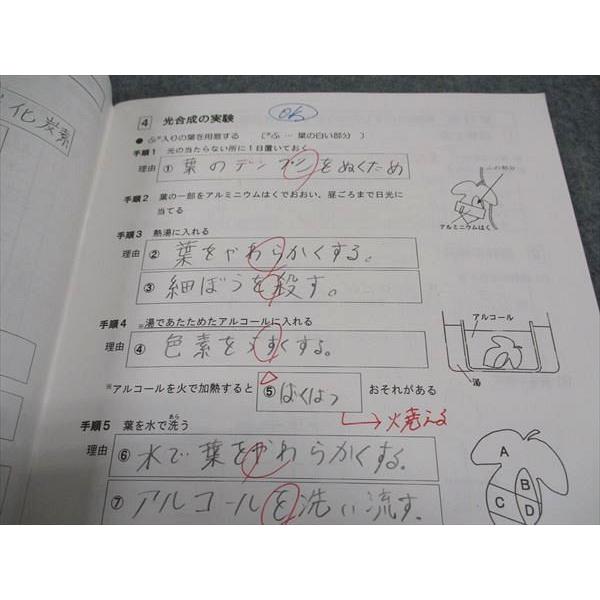 化炭素
4 光合成の実験
OK
● ふ*入りの葉を用意する （*ふ … 葉の白い部分）
手順1 光の当たらない所に1日置いておく
理由 ① 葉のデンプンをぬくため
手順2 葉の一部をアルミニウムはくでおおい、昼ごろまで日光に
当てる
ふの部分
アルミニウムはく
手順3 熱湯に入れる
理由 ② 葉をやわらかくする。
③ 細ぼうを殺す。
手順4 ※湯であたためたアルコールに入れる
理由 ④ 色素をうすくする。
アルコール
湯
※アルコールを火で加熱すると ⑤ ばくはつ おそれがある
→燃える
手順5 葉を水で洗う
あら
理由 ⑥ 水で葉をやわらかくする。
⑦ アルコールを洗い流す。
A
B
C D